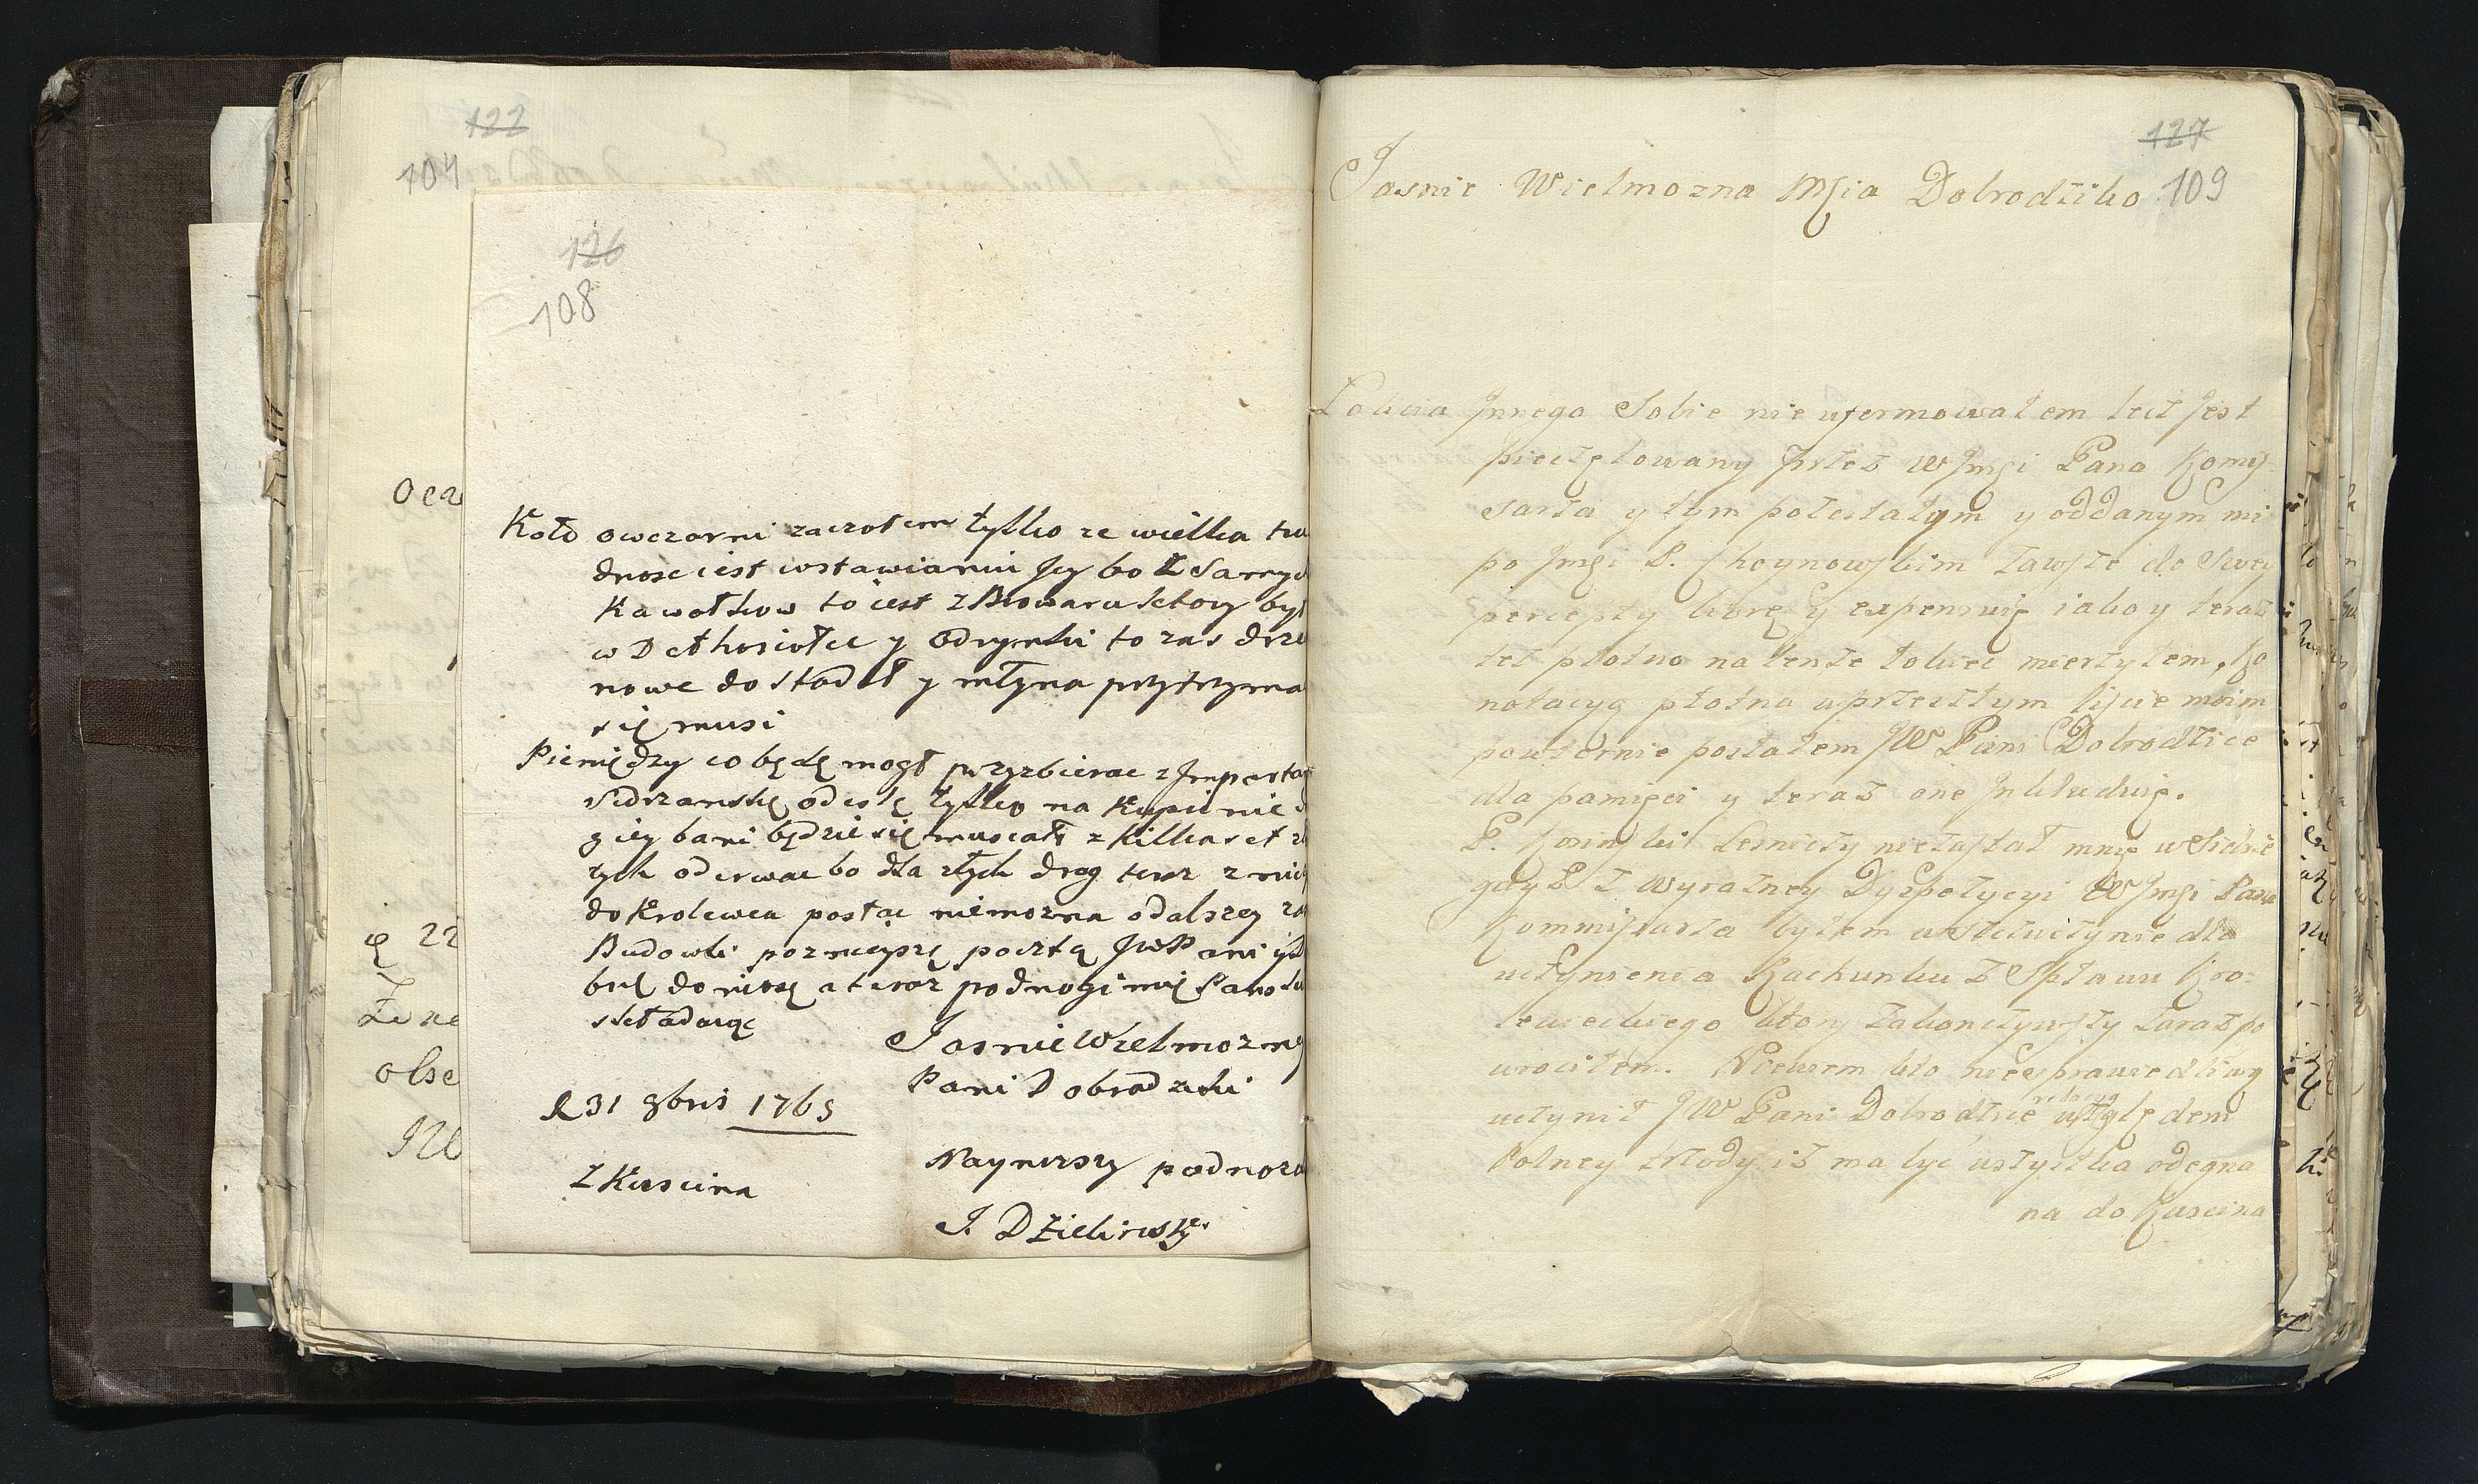 122
104
126
108
Oca
ię 22
Zene
obse
Koło owczarni zaczołem tylko ze wielka tru
dnosc iest wstawianiu Jey bo z Samych
Kawołkow to iest z Browaru ktory był
w y Odrynki to zas drze
nowe do Stodół y młyna przytrzyma
się musi
Pieniędzy co będę mogł przyzbierac z
odeslę tylko na Kupienie
giey bani będzie się musiało z Kilkaset z
tych oderwac bo dla złych drog teraz z
do Krolewca posłac niemozna o dalszey za
Budowli poznieyszą pocztą JWPani
doniosę a teraz pod nogi
składaiąc
Jasnie Wielmozney
Pani Dobrodziki
d 31 8bris 1765
Z Kuscina
Naynizszy podnoze
J. Dzieliński
127
109
Jasnie Wielmozna Mscia Dobrodziko
Łokcia Jnnego Sobie nie uformowałem lecz Jest
pieczętowany przez WJmsci Pana Komis
sarza y tym pozostałym y oddanym mi
po Jmsci P. Choynowskim zawsze do Swey
percepty biorę y expensuię iako y teraz
też płotno na tenże łokiec mierzyłem, ko
notacyą płotna w przeszłym liscie moim
powtornie posłałem JW Pani Dobrodzice
dla pamięci y teraz one Jnkluduię.
P. Lesniczy niezastał mnię w
gdysz z wyrazney Dyspozycyi WJmsci Pana
Kommissarza byłem w dla
uczynienia Rachunku z Spławu Kro-
lewieckiego ktory zakonczywszy zaraz po
wrociłem. Niewiem kto niesprawiedliwą
relacyą
uczynił JW Pani Dobrodzice względem
Polney Trzody iż ma byc wszytka odegna
na do Kuscina